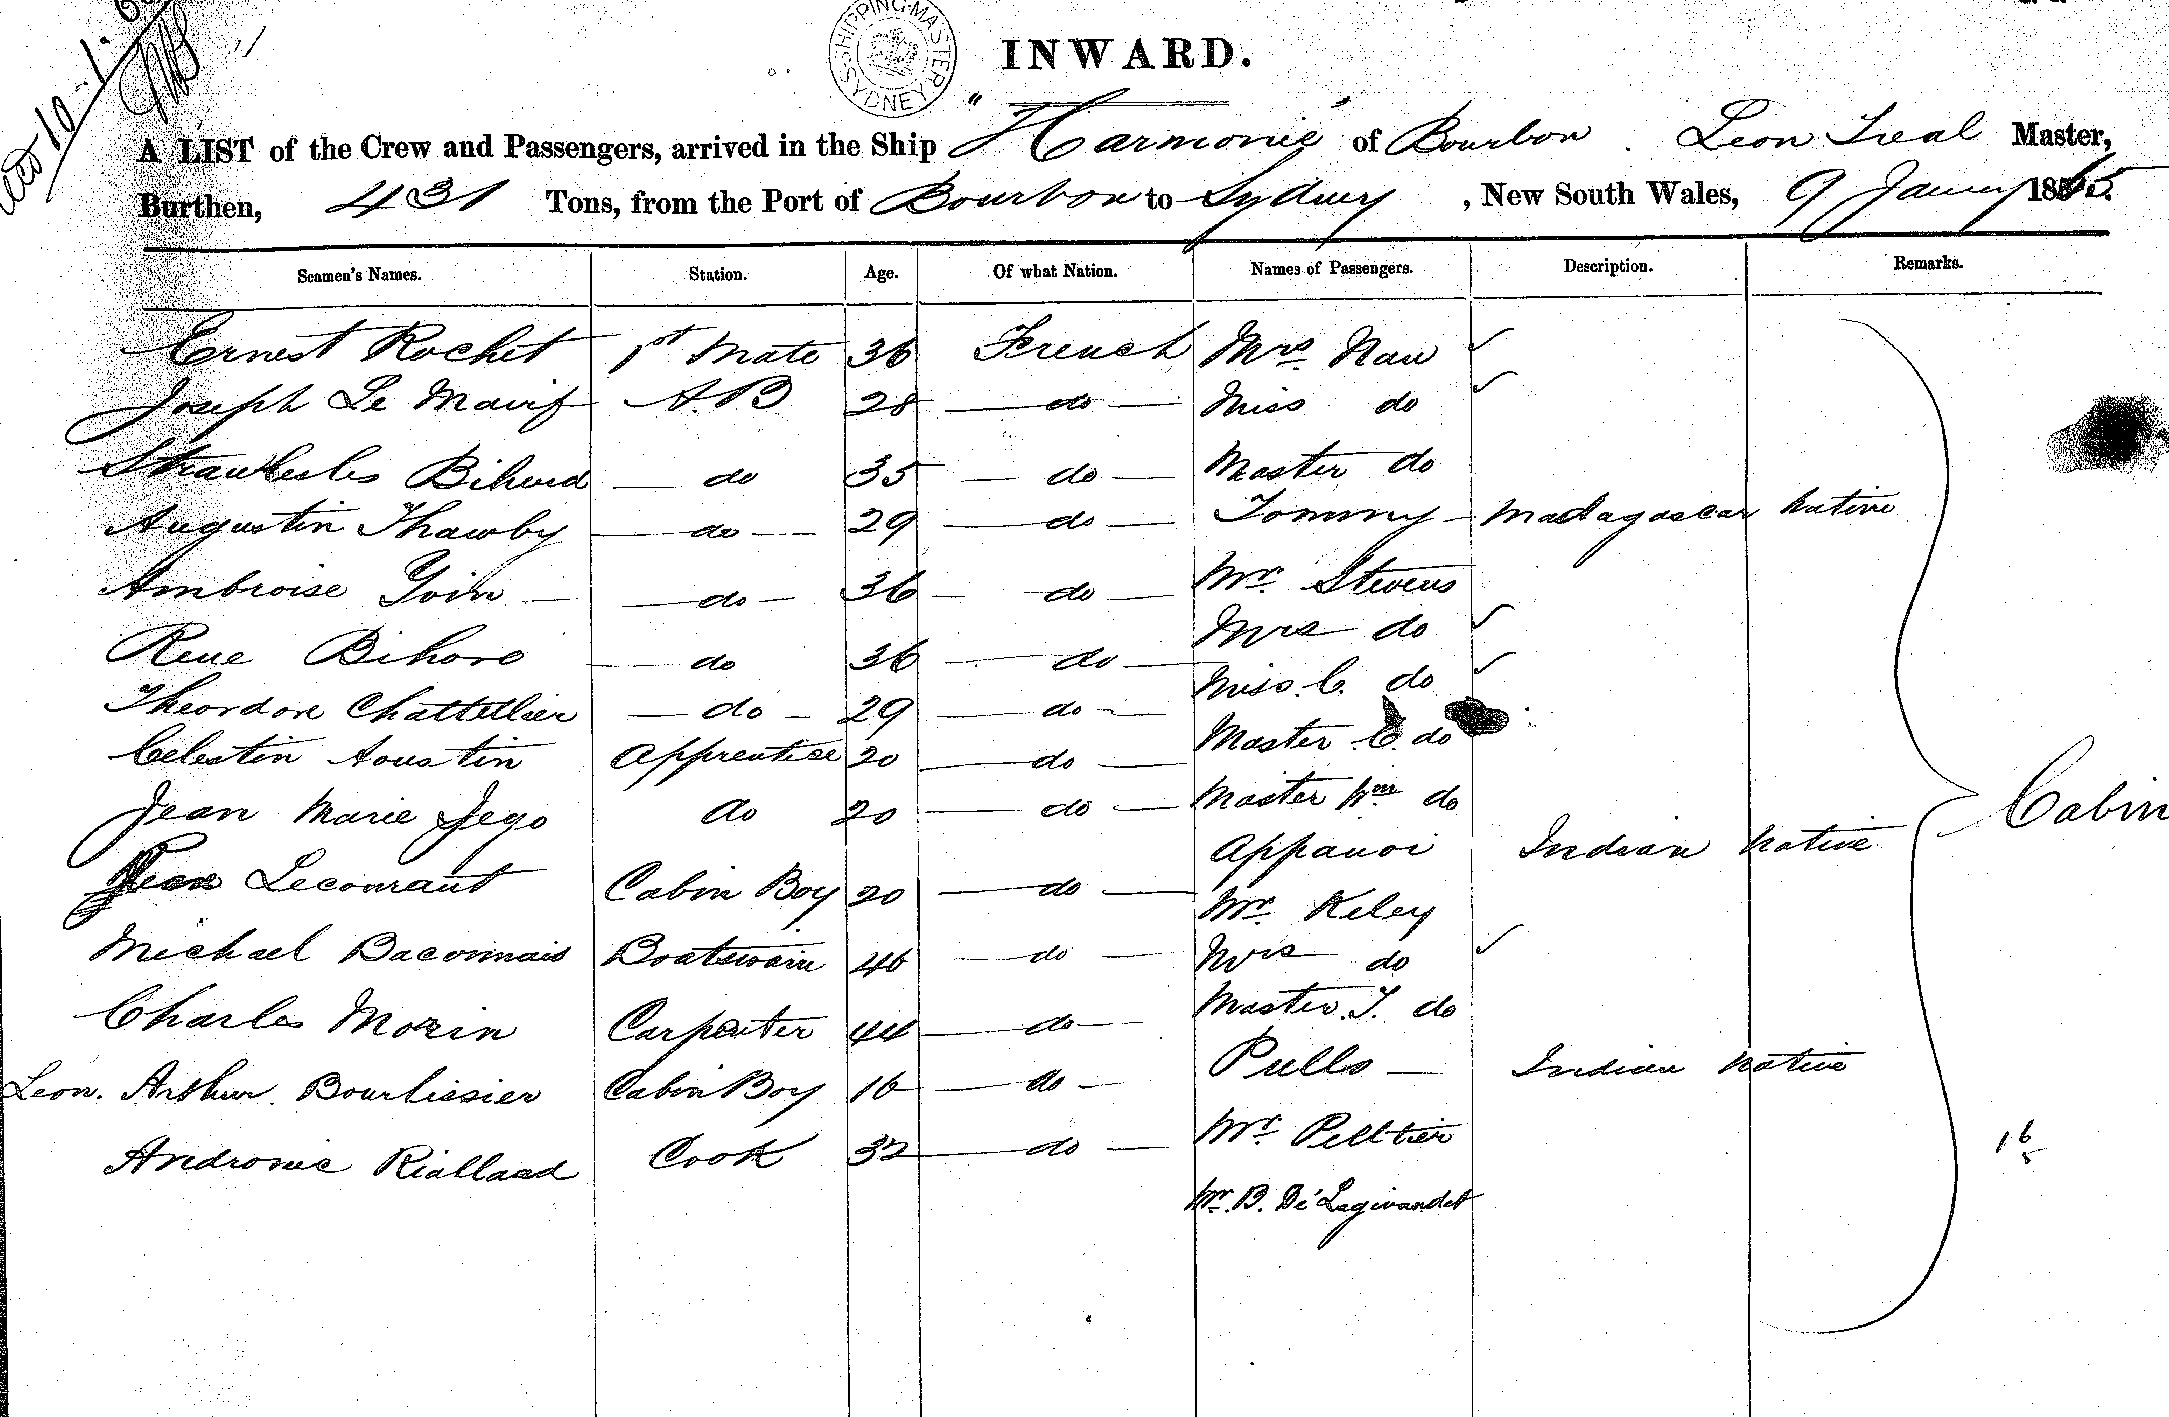 SHIPPING MASTER SYDNEY
INWARD.
A LIST of the Crew and Passengers, arrived in the Ship "Harmonie" of Bourbon. Leon Treal Master,
Burthen, 431 Tons, from the Port of Bourbon to Sydney, New South Wales, 9 January 1865.
Seamen's Names. Station. Age. Of what Nation. Names of Passengers. Description. Remarks.
Ernest Rochet 1st Mate 36 French Mrs Nau ✓
Joseph Le A.B 28 do Miss do ✓
Bihoré do 35 do Master do
Augustin Thawby do 29 do Tommy - Madagascar Native
Ambroise do 36 do Mr Stevens
Rene Bihore do 36 do Mrs do ✓
Theordore Chattellier do 29 do Miss C. do ✓
Celestin Aoustin Apprentice 20 do Master C. do
Jean Marie Jego do 20 do Master Wm do
Cabin
Appavoi Indian Native
Jean Lecourant Cabin Boy 20 do Mr Keley
Michael Baconnais Boatswain 46 do Mrs do ✓
Charles Morin Carpenter 44 do Master J. do
Leon. Arthur. Bourlissier Cabin Boy 16 do Pullo Indian Native
Andronic Riallaad Cook 32 do Mr Pelltier
16
Mr. B. De